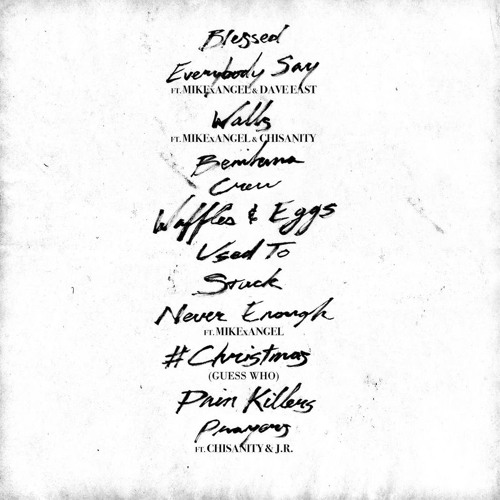 Blessed
Everybody Say
FT. MIKExANGEL & DAVE EAST
Walls
FT. MIKExANGEL & CHISANITY
Benihana
Crew
Waffles & Eggs
Used To
Stuck
Never Enough
FT. MIKExANGEL
#Christmas
(GUESS WHO)
Pain Killers
Prayers
FT. CHISANITY & J.R.